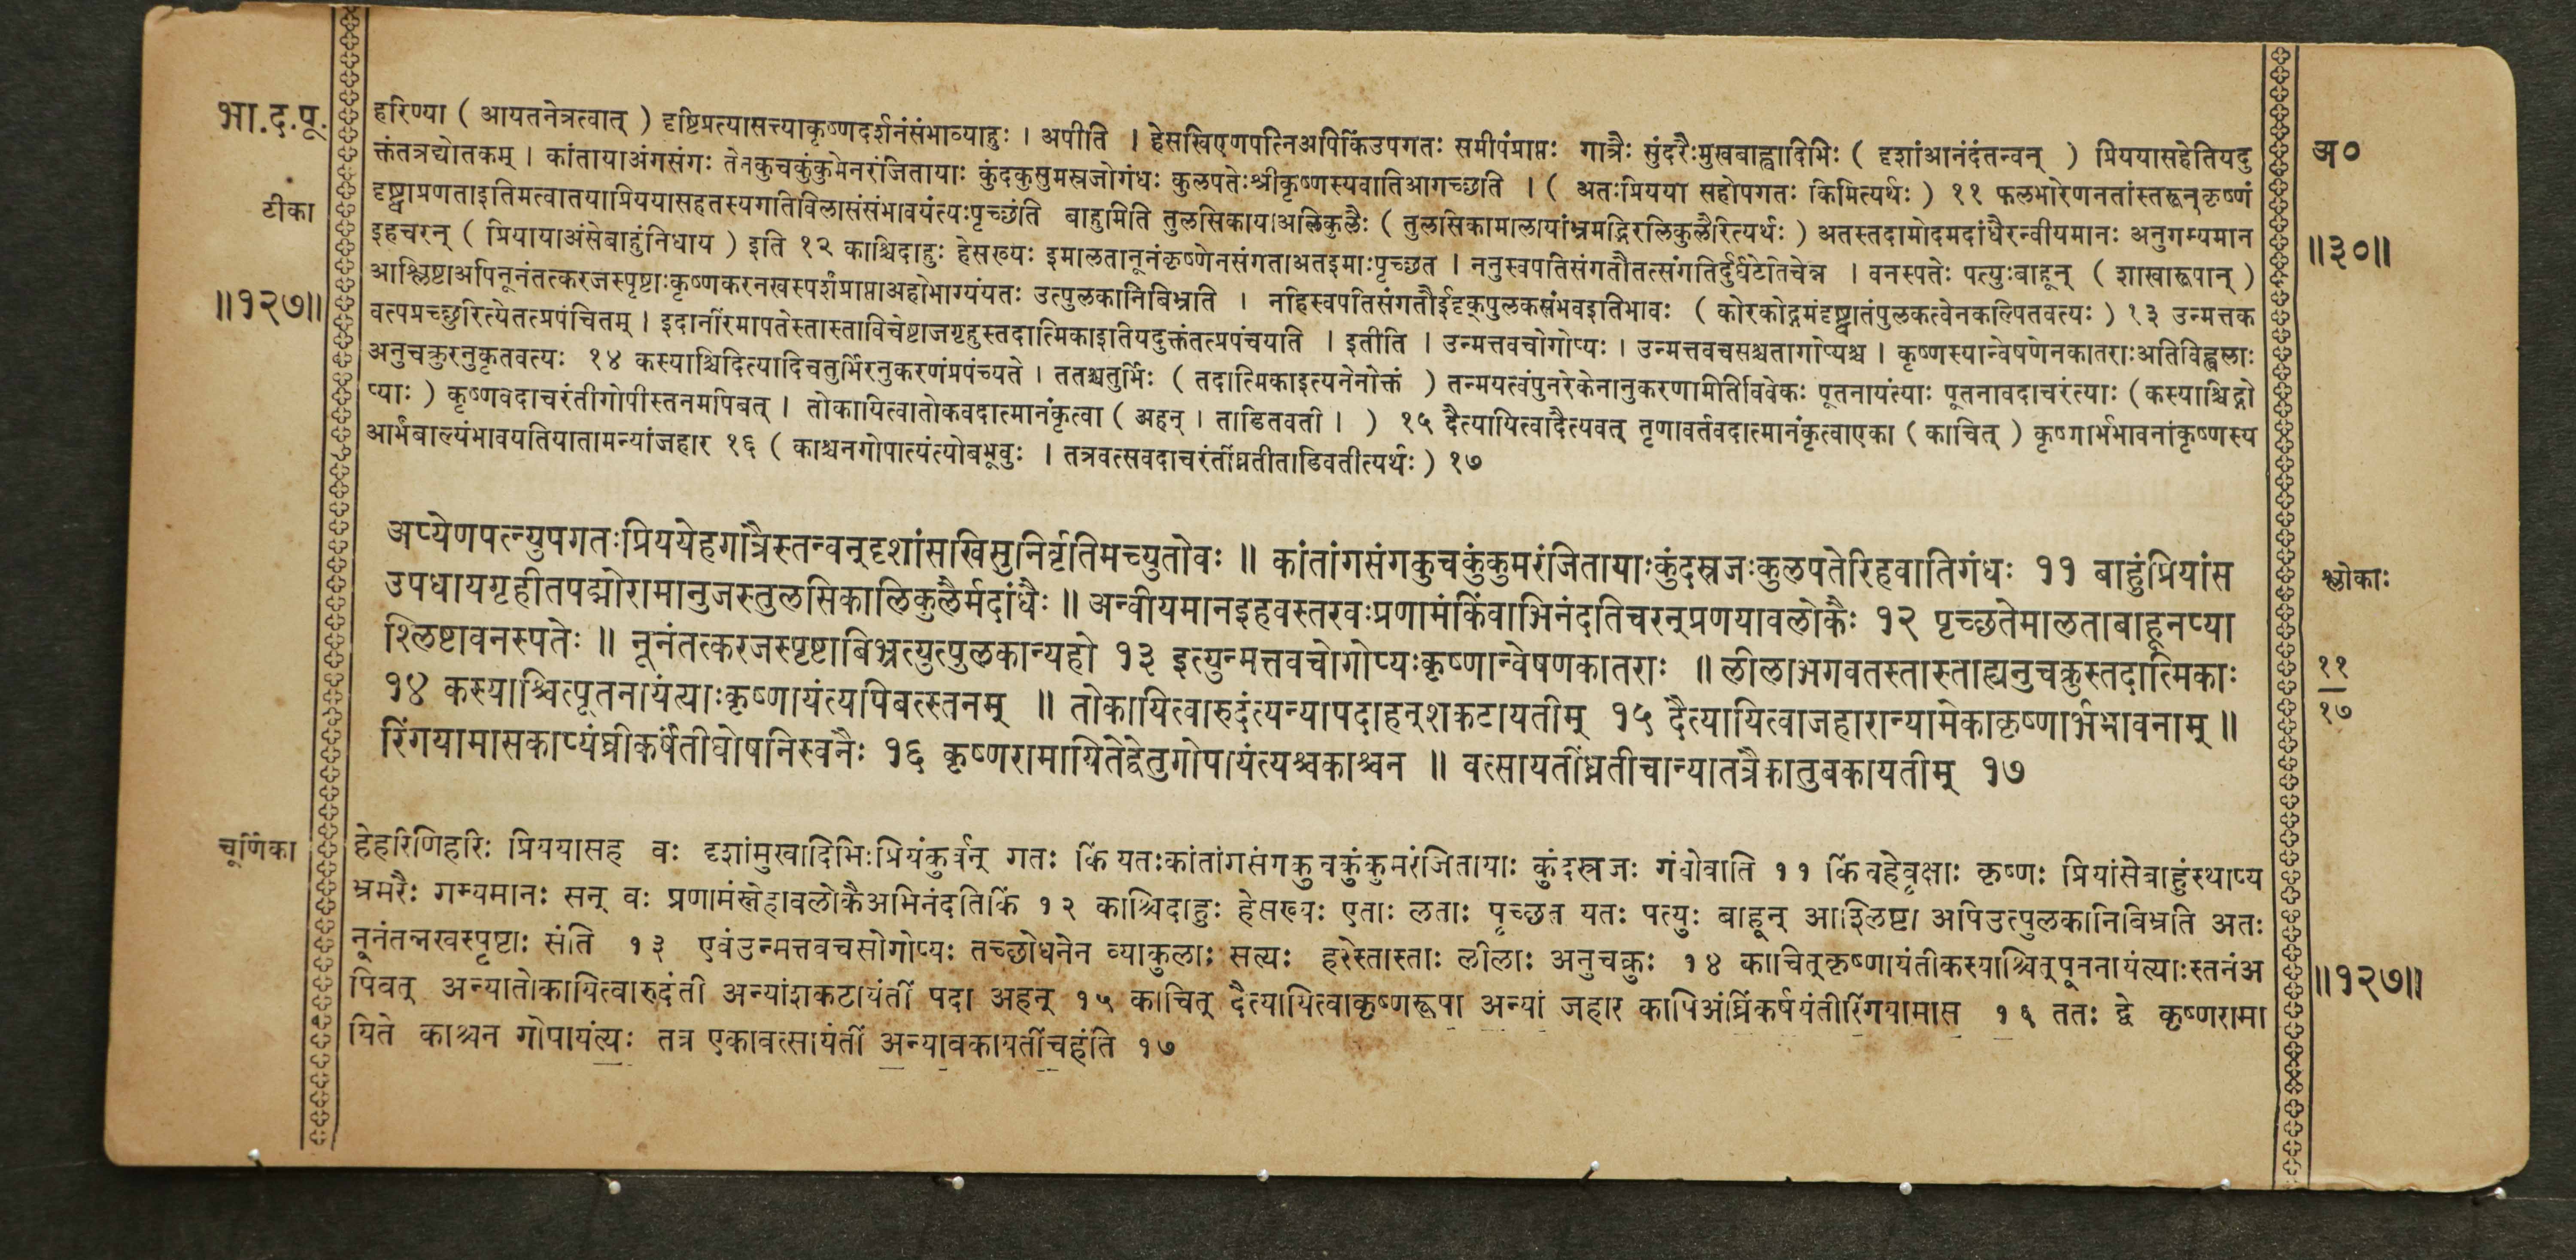 भा.द.पू.
टीका
॥१२७॥
अ०
॥३०॥
हरिण्या ( आयतनेत्रत्वात् ) दृष्टिप्रत्यासत्त्याकृष्णदर्शनंसंभाव्याहुः । अपीति । हेसखिएणपत्निअपिकिंउपगतः समीपंप्राप्तः गात्रैः सुंदरैःमुखबाह्वादिभिः ( दृशांआनंदंतन्वन् ) प्रिययासहेतियदु
क्तंतत्रद्योतकम् । कांतायाअंगसंगः तेनकुचकुंकुमेनरंजितायाः कुंदकुसुमस्रजोगंधः कुलपतेःश्रीकृष्णस्यवातिआगच्छति । ( अतःप्रियया सहोपगतः किमित्यर्थः ) ११ फलभारेणनतांस्तरून्कृष्णं
दृष्ट्वाप्रणताइतिमत्वातयाप्रिययासहतस्यगतिविलासंसंभावयंत्यःपृच्छंति बाहुमिति तुलसिकायाअलिकुलैः ( तुलसिकामालायांभ्रमद्भिरलिकुलैरित्यर्थः ) अतस्तदामोदमदांधैरन्वीयमानः अनुगम्यमान
इहचरन् ( प्रियायाअंसेबाहुंनिधाय ) इति १२ काश्चिदाहुः हेसख्यः इमालतानूनंकृष्णेनसंगताअतइमाःपृच्छत । ननुस्वपतिसंगतौतत्संगतिर्दुर्घटेतिचेन्न । वनस्पतेः पत्युःबाहून् ( शाखारूपान् )
आश्लिष्टाअपिनूनंतत्करजस्पृष्टाःकृष्णकरनखस्पर्शंप्राप्ताअहोभाग्यंयतः उत्पुलकानिबिभ्रति । नहिस्वपतिसंगतौईदृक्पुलकसंभवइतिभावः ( कोरकोद्गमंदृष्ट्वातंपुलकत्वेनकल्पितवत्यः ) १३ उन्मत्तक
वत्पप्रच्छुरित्येतत्प्रपंचितम् । इदानींरमापतेस्तास्ताविचेष्टाजगृहुस्तदात्मिकाइतियदुक्तंतत्प्रपंचयति । इतीति । उन्मत्तवचोगोप्यः । उन्मत्तवचसश्चतागोप्यश्च । कृष्णस्यान्वेषणेनकातराःअतिविह्वलाः
अनुचक्रुरनुकृतवत्यः १४ कस्याश्चिदित्यादिचतुर्भिरनुकरणंप्रपंच्यते । ततश्चतुर्भिः ( तदात्मिकाइत्यनेनोक्तं ) तन्मयत्वंपुनरेकेनानुकरणामीतिविवेकः पूतनायंत्याः पूतनावदाचरंत्याः (कस्याश्चिद्गो
प्याः ) कृष्णवदाचरंतीगोपीस्तनमपिबत् । तोकायित्वातोकवदात्मानंकृत्वा ( अहन् । ताडितवती । ) १५ दैत्यायित्वादैत्यवत् तृणावर्तवदात्मानंकृत्वाएका ( काचित् ) कृष्णार्भभावनांकृष्णस्य
आर्भंबाल्यंभावयतियातामन्यांजहार १६ ( काश्चनगोपात्यंत्योबभूवुः । तत्रवत्सवदाचरंतींघ्नतीताडिवतीत्यर्थः ) १७
श्लोकाः
११
१७
अप्येणपत्न्युपगतःप्रिययेहगात्रैस्तन्वन्दृशांसखिसुनिर्वृतिमच्युतोवः ॥ कांतांगसंगकुचकुंकुमरंजितायाःकुंदस्रजःकुलपतेरिहवातिगंधः ११ बाहुंप्रियांस
उपधायगृहीतपद्मोरामानुजस्तुलसिकालिकुलैर्मदांधैः ॥ अन्वीयमानइहवस्तरवःप्रणामंकिंवाभिनंदतिचरन्प्रणयावलोकैः १२ पृच्छतेमालताबाहूनप्या
श्लिष्टावनस्पतेः ॥ नूनंतत्करजस्पृष्टाबिभ्रत्युत्पुलकान्यहो १३ इत्युन्मत्तवचोगोप्यःकृष्णान्वेषणकातराः ॥ लीलाभगवतस्तास्ताह्यनुचक्रुस्तदात्मिकाः
१४ कस्याश्चित्पूतनायंत्याःकृष्णायंत्यपिबत्स्तनम् ॥ तोकायित्वारुदंत्यन्यापदाहन्शकटायतीम् १५ दैत्यायित्वाजहारान्यामेकाकृष्णार्भभावनाम् ॥
रिंगयामासकाप्यंघ्रीकर्षतीघोषनिस्वनैः १६ कृष्णरामायितेद्वेतुगोपायंत्यश्चकाश्चन ॥ वत्सायतींघ्नतीचान्यातत्रैकातुबकायतीम् १७
चूर्णिका
॥१२७॥
हेहरिणिहरिः प्रिययासह वः दृशांमुखादिभिःप्रियंकुर्वन् गतः किं यतःकांतांगसंगकुचकुंकुमरंजितायाः कुंदस्रजः गंधोवाति ११ किंवहेवृक्षाः कृष्णः प्रियांसेबाहुंस्थाप्य
भ्रमरैः गम्यमानः सन् वः प्रणामंस्नेहावलोकैअभिनंदतिकिं १२ काश्चिदाहुः हेसख्यः एताः लताः पृच्छत यतः पत्युः बाहून् आश्लिष्टा अपिउत्पुलकानिबिभ्रति अतः
नूनंतन्नखस्पृष्टाः संति १३ एवंउन्मत्तवचसोगोप्यः तच्छोधनेन व्याकुलाः सत्यः हरेस्तास्ताः लीलाः अनुचक्रुः १४ काचित्कृष्णायंतीकस्याश्चित्पूतनायंत्याःस्तनंअ
पिबत् अन्यातोकायित्वारुदंती अन्यांशकटायंतीं पदा अहन् १५ काचित् दैत्यायित्वाकृष्णरूपा अन्यां जहार कापिअंघ्रिंकर्षयंतीरिंगयामास १६ ततः द्वे कृष्णरामा
यिते काश्चन गोपायंत्यः तत्र एकावत्सायंतीं अन्याबकायतींचहंति १७